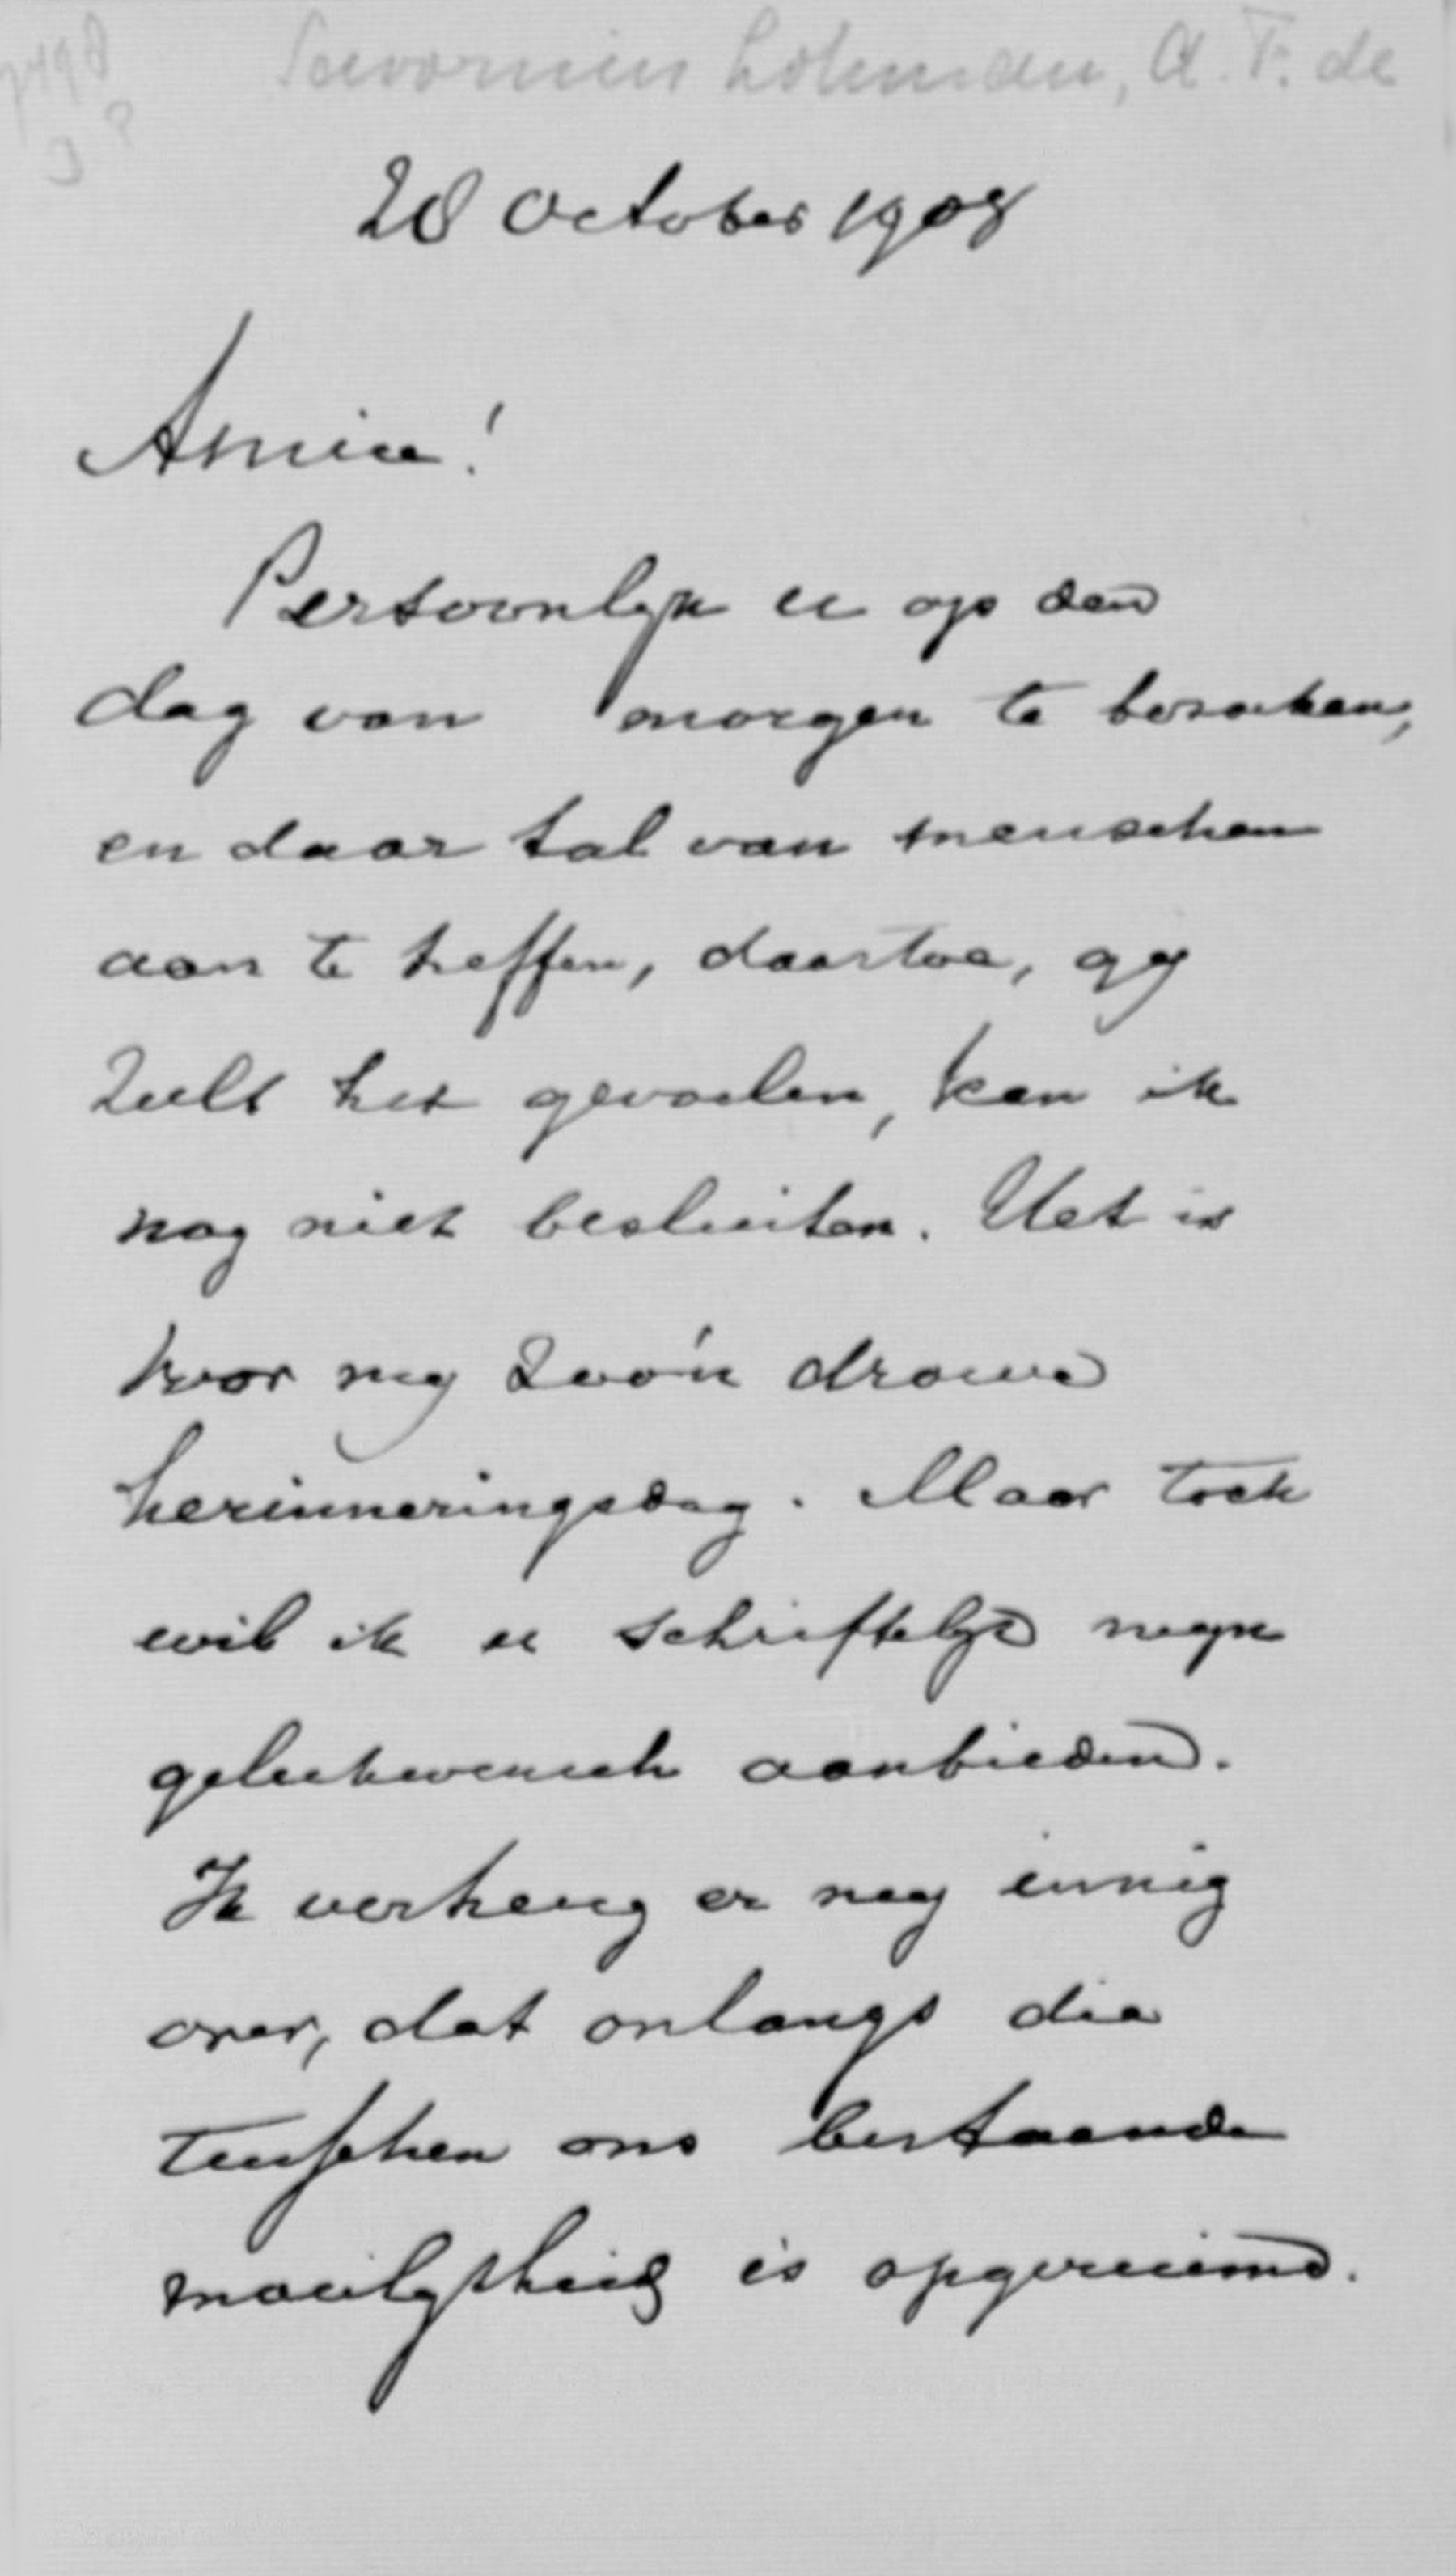 Savornin Lohman, A. F. de
28 October 1908
Amice!
Persoonlijk u op den
dag van morgen te bezoeken,
en daar tal van menschen
aan te treffen, daartoe, gij
zult het gevoelen, kan ik
nog niet besluiten. Het is
voor mij zoo'n droeve
herinneringsdag. Maar toch
wil ik u schriftelijk mijn
gelukwensch aanbieden.
Ik verheug er mij innig
over, dat onlangs die
tusschen ons bestaande
moeilijkheid is opgeruimd.